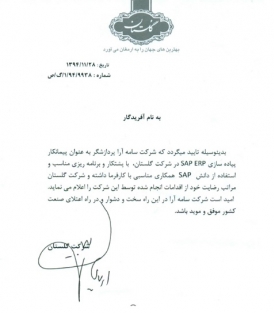 گلستان
بهترین های جهان را به ارمغان می آورد
تاریخ : ۱۳۹۴/۱۱/۲۸
شماره : ۱/۹۴/۹۹۳۸/گ/ص
به نام آفریدگار
بدینوسیله تایید میگردد که شرکت سامه آرا پردازشگر به عنوان پیمانکار
پیاده سازی SAP ERP در شرکت گلستان، با پشتکار و برنامه ریزی مناسب و
استفاده از دانش SAP همکاری مناسبی با کارفرما داشته و شرکت گلستان
مراتب رضایت خود از اقدامات انجام شده توسط این شرکت را اعلام می نماید.
امید است شرکت سامه آرا در این راه سخت و دشوار و در راه اعتلای صنعت
کشور موفق و موید باشد.
شرکت گلستان